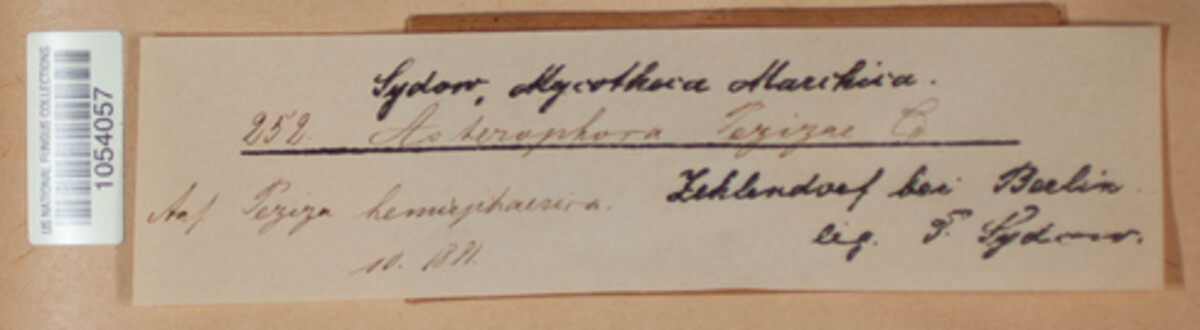 US NATIONAL FUNGUS COLLECTIONS
1054057
Sydow, Mycotheca Marchica.
252. Asterophora Pezizae C
Auf Peziza hemisphaerica.
10. 1881.
Zehlendorf bei Berlin.
leg. P. Sydow.